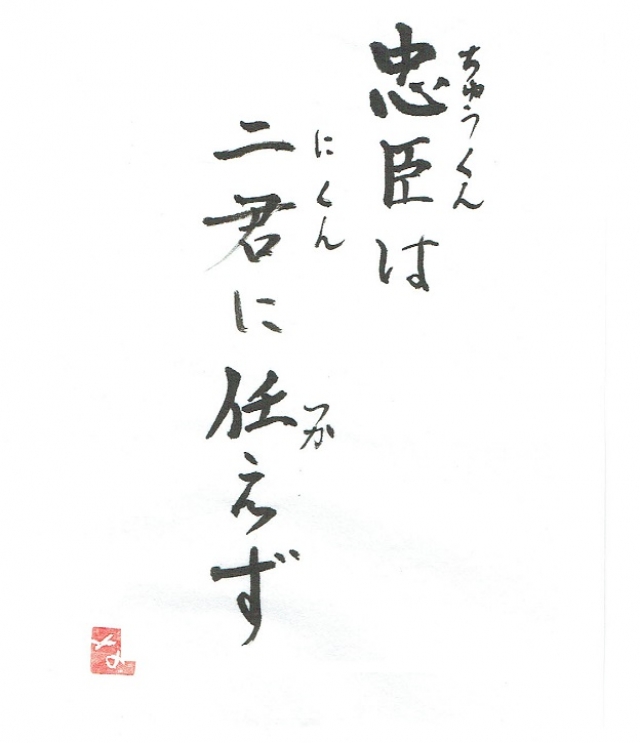 ちゅうくん
忠臣は
にくん つか
二君に任えず